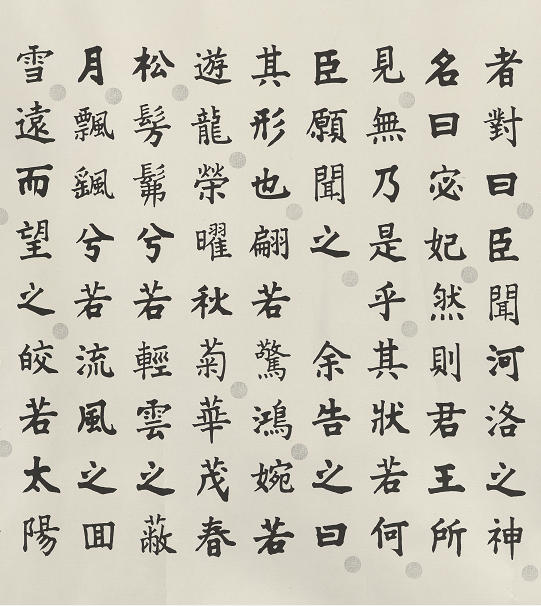 者對曰臣聞河洛之神
名曰宓妃然則君王所
見無乃是乎其狀若何
臣願聞之　余告之曰
其形也翩若驚鴻婉若
遊龍榮曜秋菊華茂春
松髣髴兮若輕雲之蔽
月飄颻兮若流風之囬
雪遠而望之皎若太陽